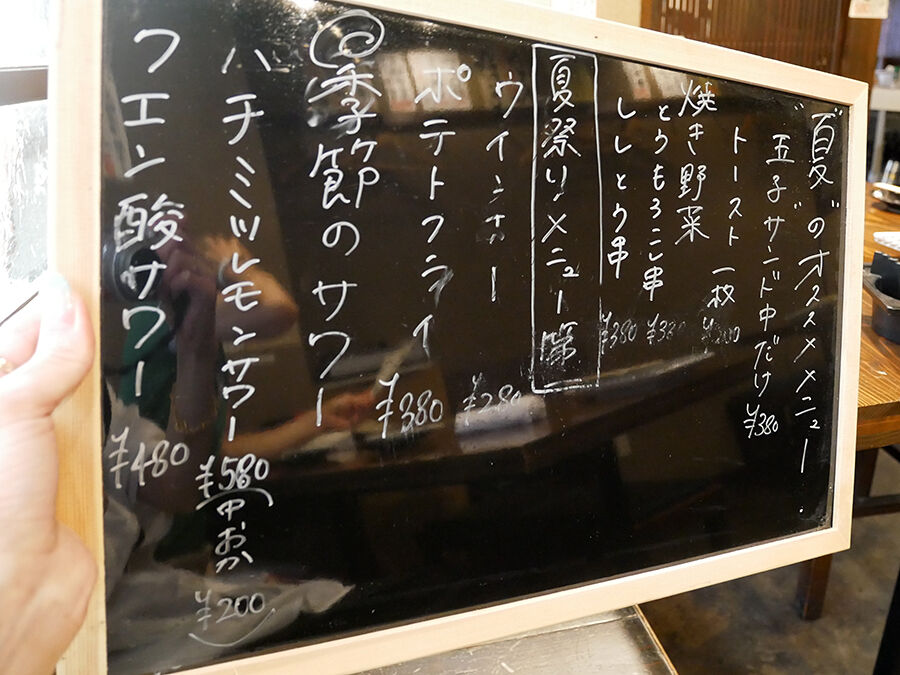 "夏"のオススメメニュー
"玉子サンド中だけ ¥380
トースト 一枚 ¥200
焼き野菜
とうもろこし串 ¥380
ししとう串 ¥380
夏祭りメニュー
ウインナー ¥280
ポテトフライ ¥380
季節のサワー
ハチミツレモンサワー ¥580
中おか ¥200
クエン酸サワー ¥480